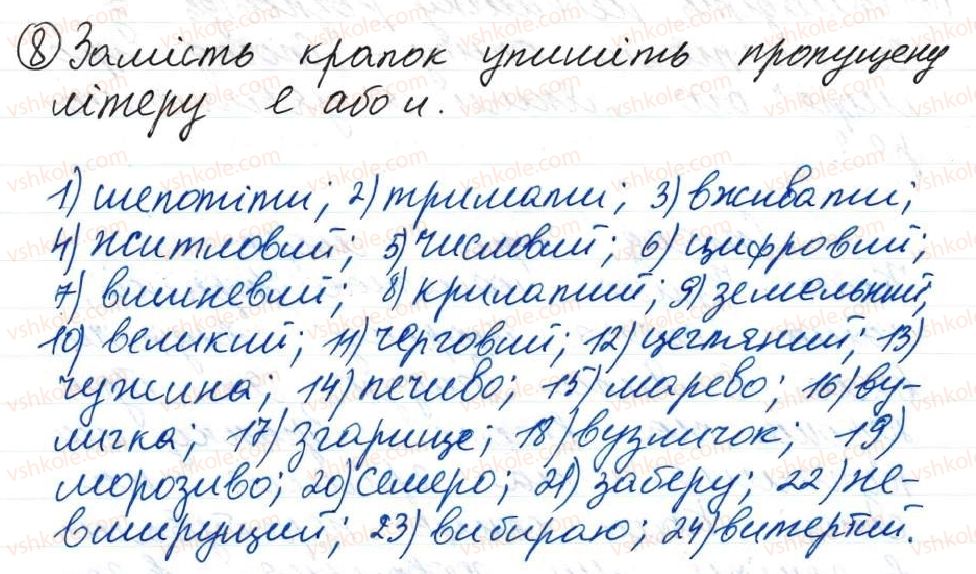 8 Замість крапок упишіть пропущену
літеру е або и.
1) шепотіти; 2) тримати; 3) вживати;
4) житловий; 5) числовий; 6) цифровий;
7) вишневий; 8) крилатий; 9) земельний;
10) великий; 11) черговий; 12) цегляний; 13)
чужина; 14) печиво; 15) марево; 16) ву-
личка; 17) згарище; 18) вузличок; 19)
морозиво; 20) семеро; 21) заберу; 22) не-
вмирущий; 23) вибираю; 24) витертий.